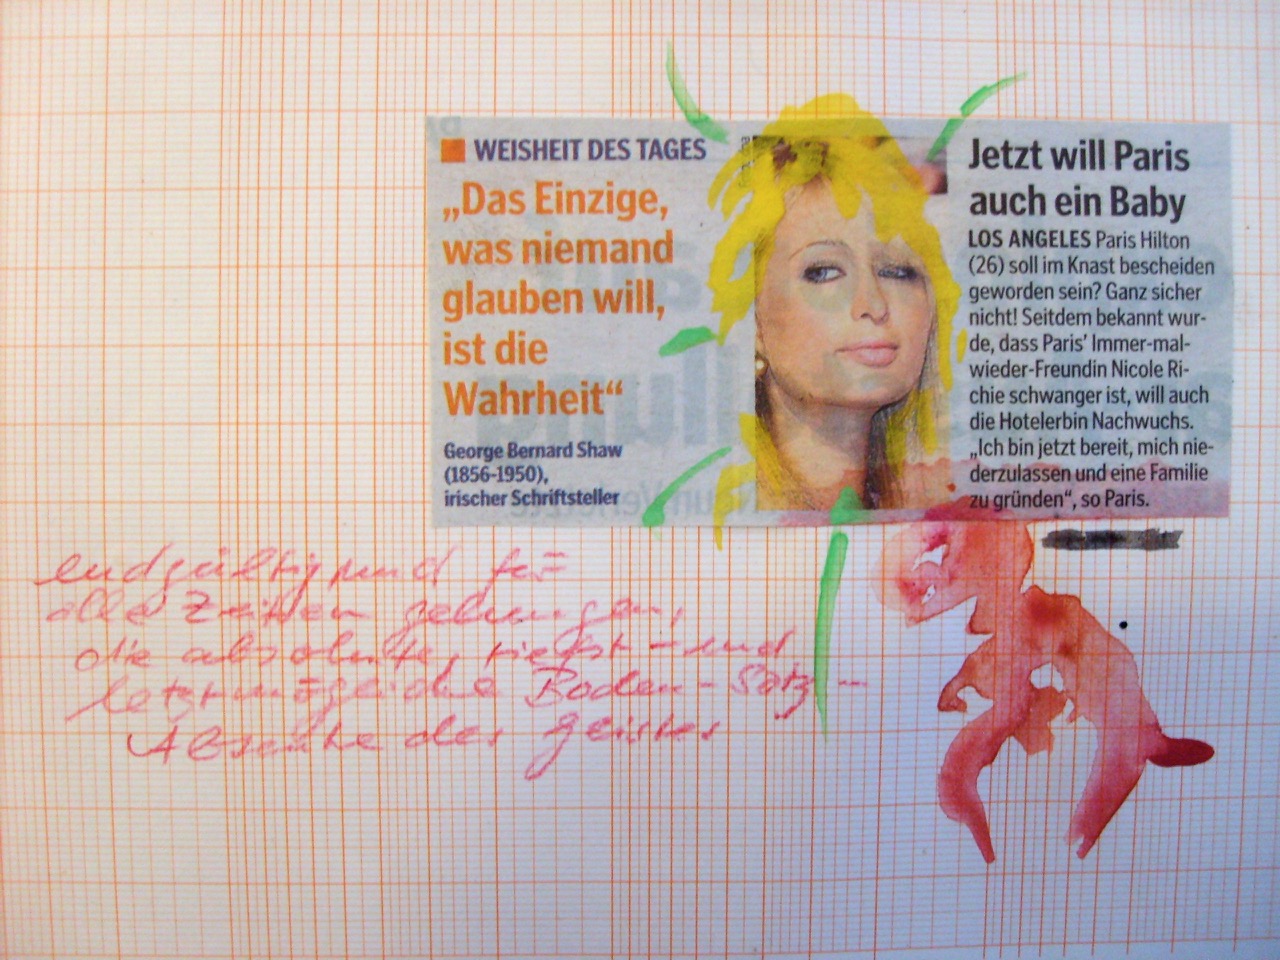 WEISHEIT DES TAGES
„Das Einzige,
was niemand
glauben will,
ist die
Wahrheit“
George Bernard Shaw
(1856-1950),
irischer Schriftsteller
Jetzt will Paris
auch ein Baby
LOS ANGELES Paris Hilton
(26) soll im Knast bescheiden
geworden sein? Ganz sicher
nicht! Seitdem bekannt wur-
de, dass Paris’ Immer-mal-
wieder-Freundin Nicole Ri-
chie schwanger ist, will auch
die Hotelerbin Nachwuchs.
„Ich bin jetzt bereit, mich nie-
derzulassen und eine Familie
zu gründen“, so Paris.
endgültig und für
alle Zeiten gelungen,
die absolute, tiefst- und
letztmögliche Boden-Satz-
Absenke des geistes